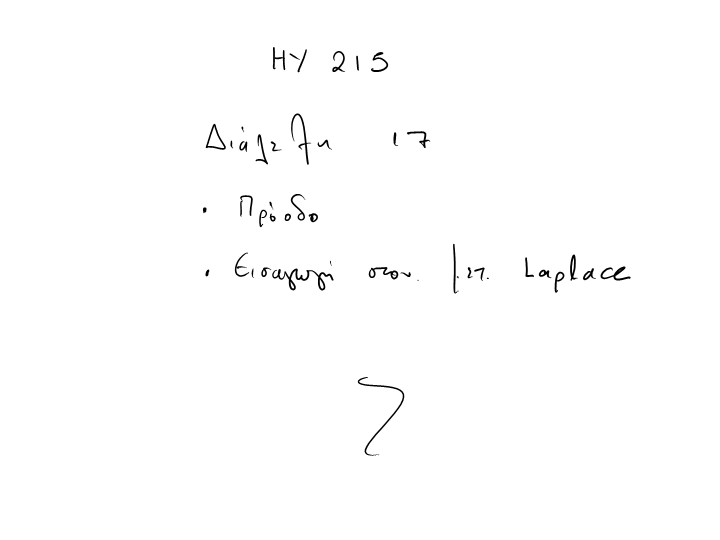 ΗΥ 215
Διάλεξη 17
• Πρόοδο
• Εισαγωγή στον μετ. Laplace